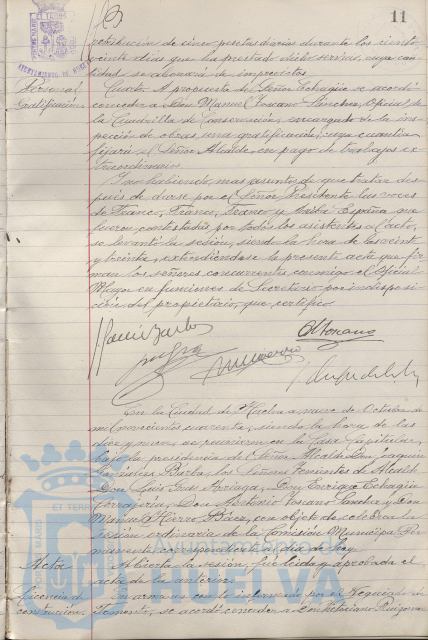 11
retribución de cinco pesetas diarias durante los ciento
veinte días que ha prestado dicho servicio, cuya can-
tidad se abonará de imprevistos.
Personal
Gratificación
Cuarto. A propuesta del Señor Echagüe se acordó
conceder a Don Manuel Toscano Sánchez, Oficial de
la Cuadrilla de Conservación, encargado de la ins-
pección de obras, una gratificación, cuya cuantía
fijará el Señor Alcalde, en pago de trabajos ex-
traordinarios.
Y no habiendo mas asuntos de que tratar des-
pués de darse por el Señor Presidente las voces
de Franco, Franco, Franco y Arriba España que
fueron contestadas por todos los asistentes al acto,
se levantó la sesión, siendo la hora de las veinte
y treinta, extendiéndose la presente acta que fir-
man los señores concurrentes conmigo el Oficial
Mayor en funciones de Secretario por indisposi-
ción del propietario, que certifico.
En la Ciudad de Huelva a nueve de Octubre de
mil novecientos cuarenta, siendo la hora de las
diez y nueve, se reunieron en la Casa Capitular,
bajo la presidencia del Señor Alcalde Don Joaquín
González Barba, los Señores Tenientes de Alcalde
Don Luis Arriaga, Don Enrique Echagüe
Don Antonio Toscano Sánchez y Don
Manuel Hierro Báez, con objeto de celebrar la
sesión ordinaria de la Comisión Municipal Per-
manente correspondiente al día de hoy.
Acta
Abierta la sesión, fué leída y aprobada el
acta de la anterior.
Licencia de
construcciones
En armonía con lo informado por el Negociado de
Fomento, se acordó conceder a Don Victoriano
Ayuntamiento de
HUELVA